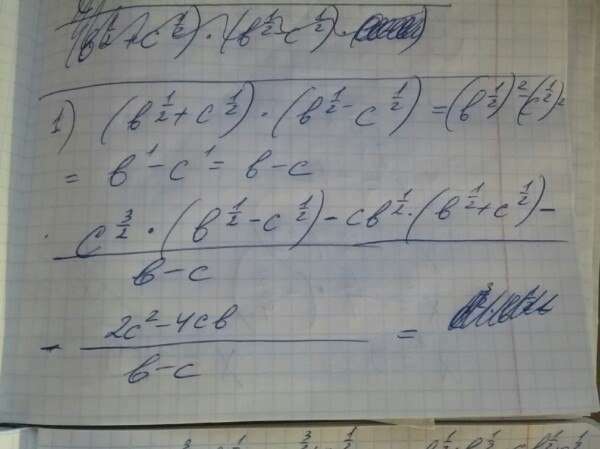 (в^{1/2}+c^{1/2}) · (в^{1/2}-c^{1/2}) ·
1) (в^{1/2}+c^{1/2}) · (в^{1/2}-c^{1/2}) = (в^{1/2})^2-(c^{1/2})^2
= в^1-c^1= в-c
c^{3/2} · (в^{1/2}-c^{1/2}) - cв^{1/2} · (в^{1/2}+c^{1/2}) -
в-c
- 2c^2-4cв =
в-c